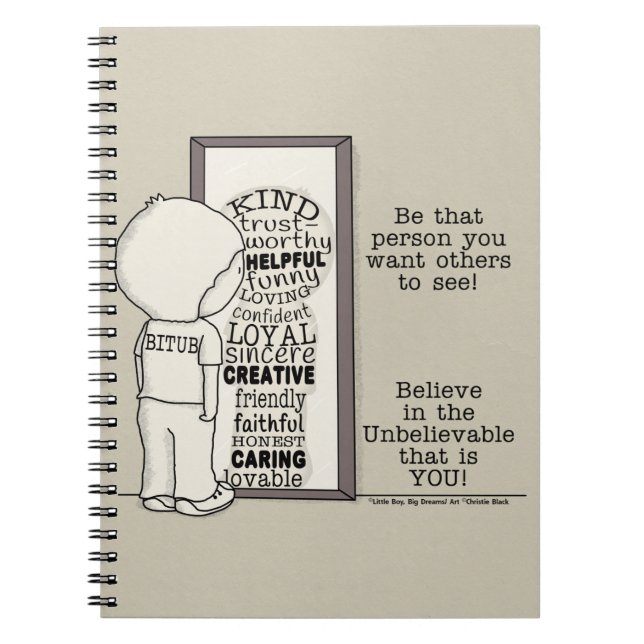 BITUB
KIND
trust-
worthy
HELPFUL
funny
LOVING
confident
LOYAL
sincere
CREATIVE
friendly
faithful
HONEST
CARING
lovable
Be that
person you
want others
to see!
Believe
in the
Unbelievable
that is
YOU!
©Little Boy, Big Dreams/ Art ©Christie Black